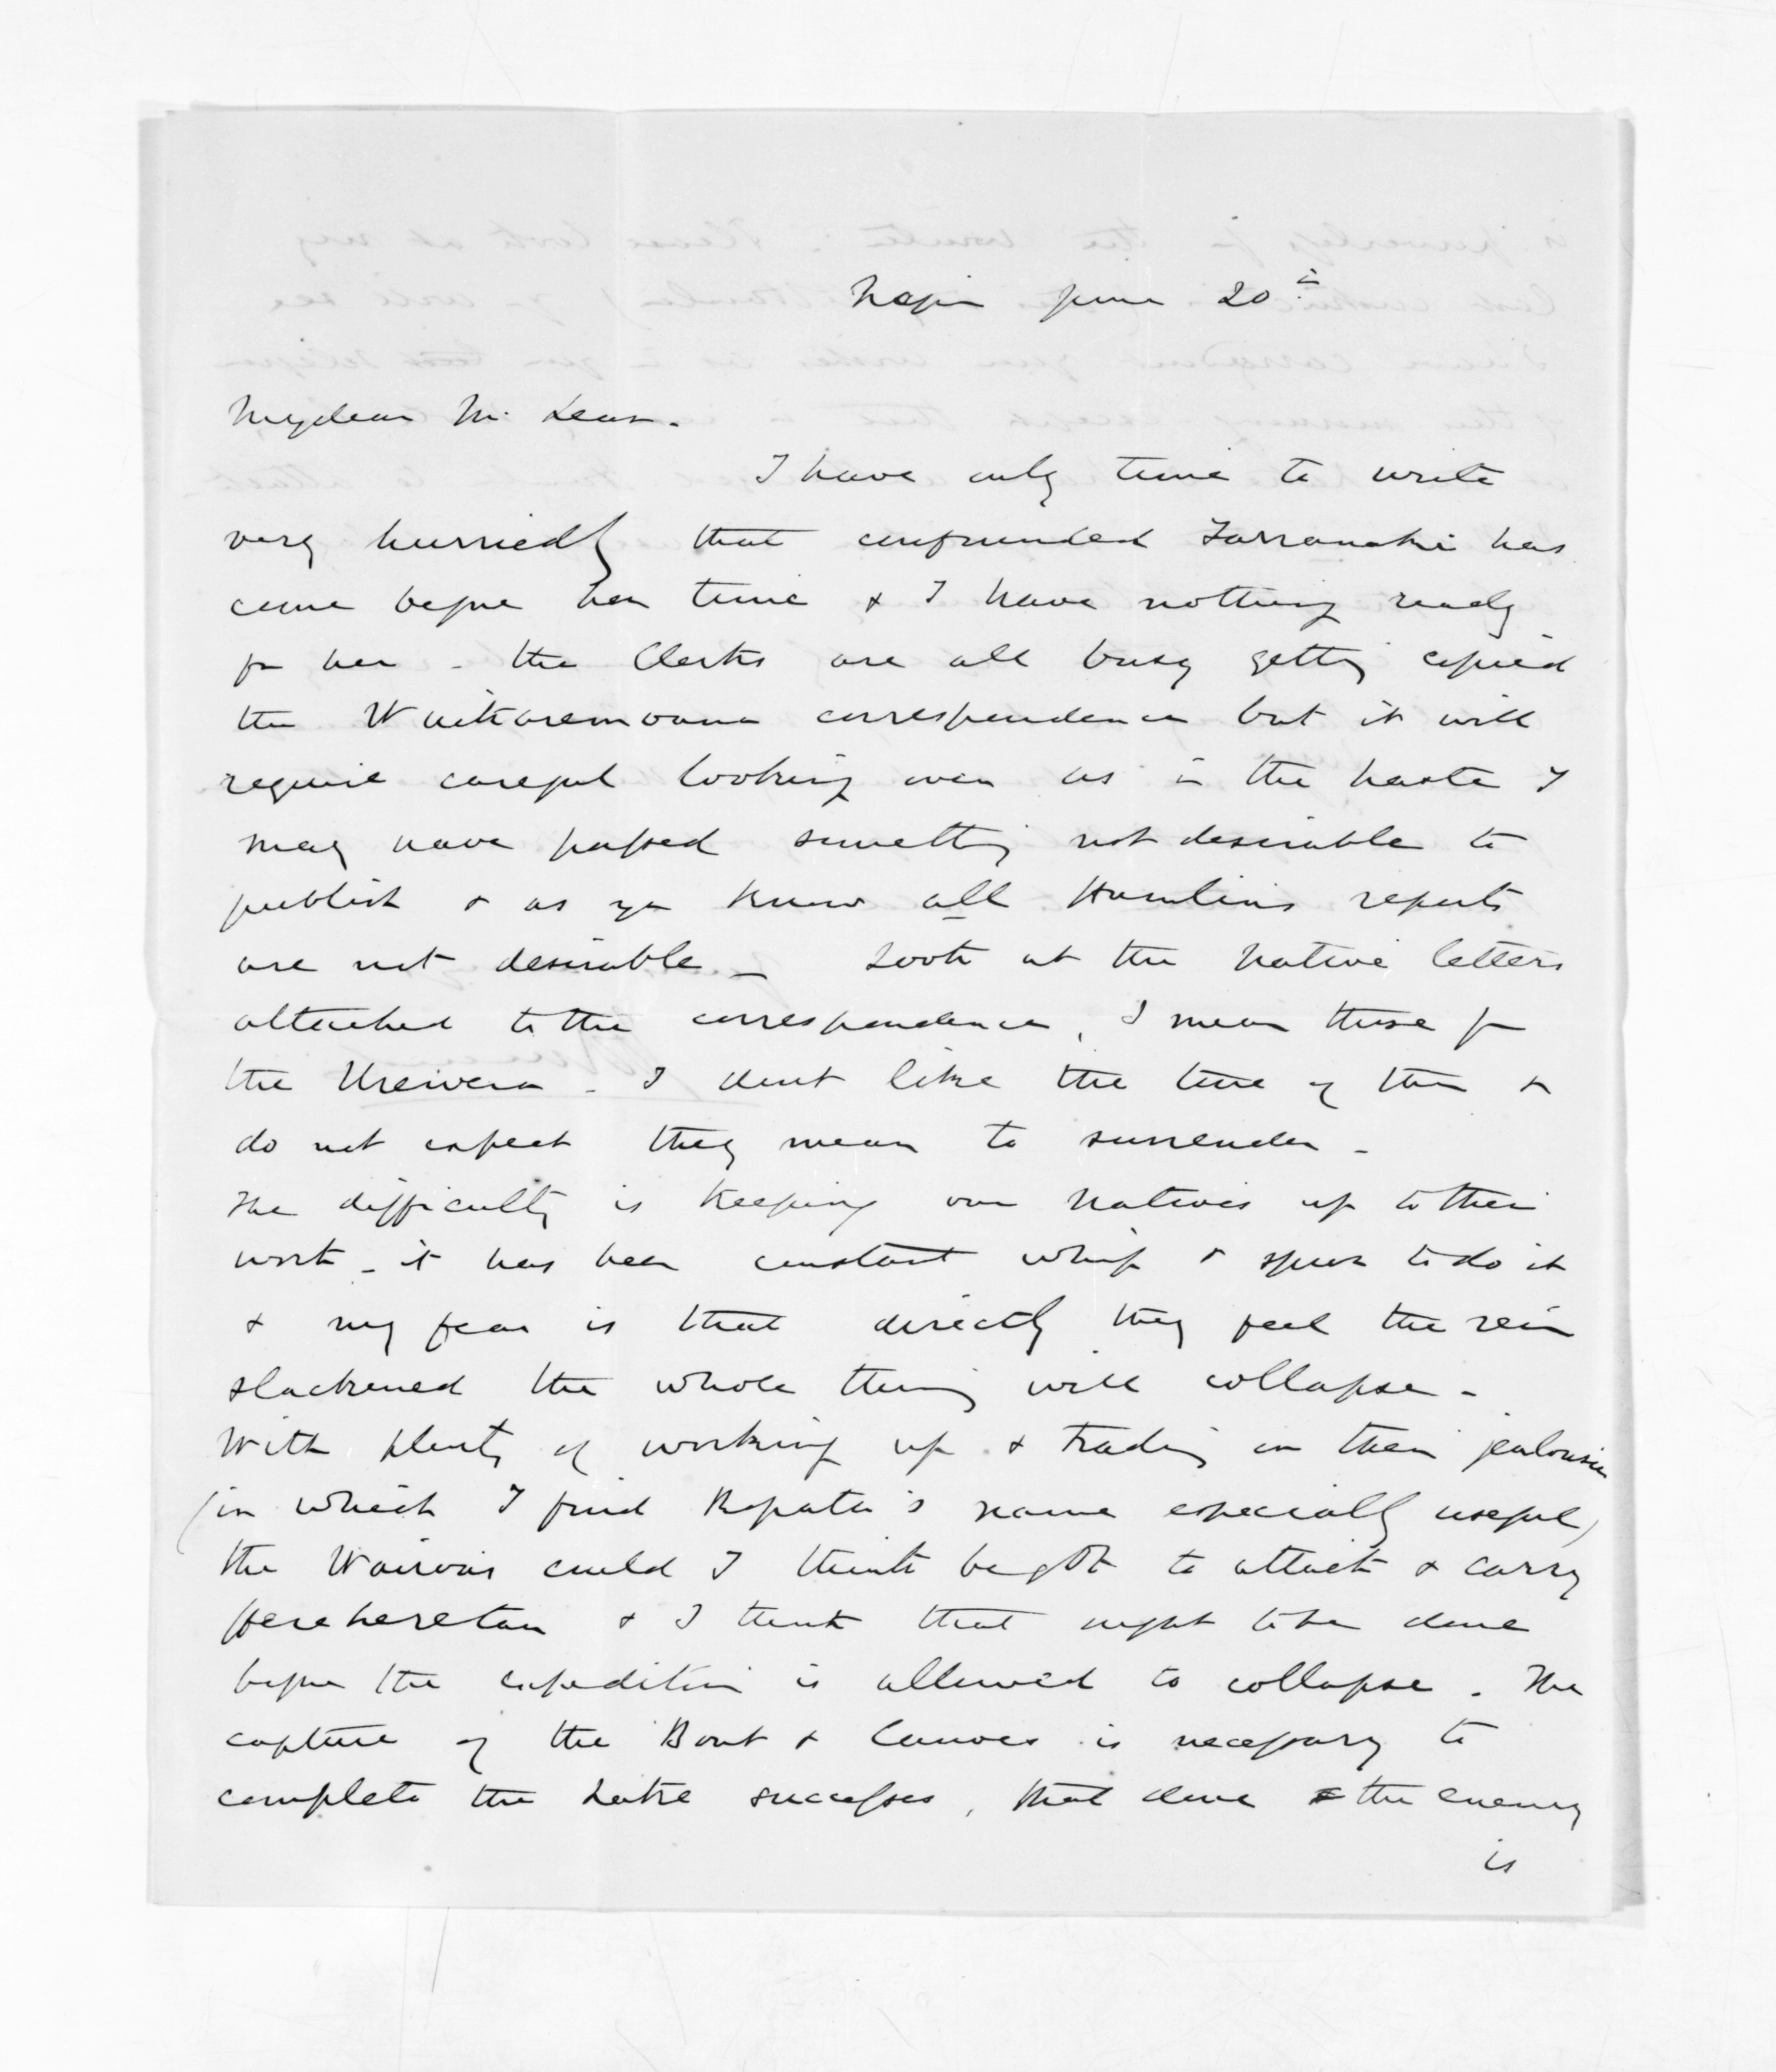 Napier June 20th
My dear McLean.
I have only time to write
very hurriedly that confounded Tarranaki has
come before her time & I have nothing ready
for her - the Clerks are all busy getting copied
the Waikaremoana correspondence but it will
require careful looking over as in the haste I
may have passed something not desirable to
publish & as you know all Hamlins reports
are not desirable - Look at the Native letters
attached to the correspondence, I mean those for
the Urewera - I dont like the tone of them &
do not expect they mean to surrender -
The difficulty is keeping our Natives up to their
work - it has been constant whip & spur to do it
& my fear is that directly they feel the rein
slackened the whole thing will collapse -
With plenty of working up & trading on their jealousies
(in which I find Ropata's name especially useful)
the Wairoas could I think be got to attack & carry
Herehereton & I think that ought to be done
before the expedition is allowed to collapse. The
capture of the Boat & Canoes is necessary to
complete the Lake successes, that done the enemy
is